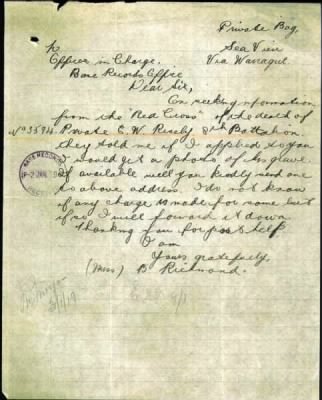 Private Bag,
Sea View
Via Warragul
To
Officer in Charge.
Base Records Office
Dear Sir,
On seeking information
from the "Red Cross" of the death of
Private E. W. 8th Battalion
they told me if I applied to you
I would get a photo of his grave
if available will you kindly send one
to above address. I do not know
if any charge is made for same but
if so I will forward it down
Thanking you for past help
I am
Yours gratefully,
(Miss) B Richmond.